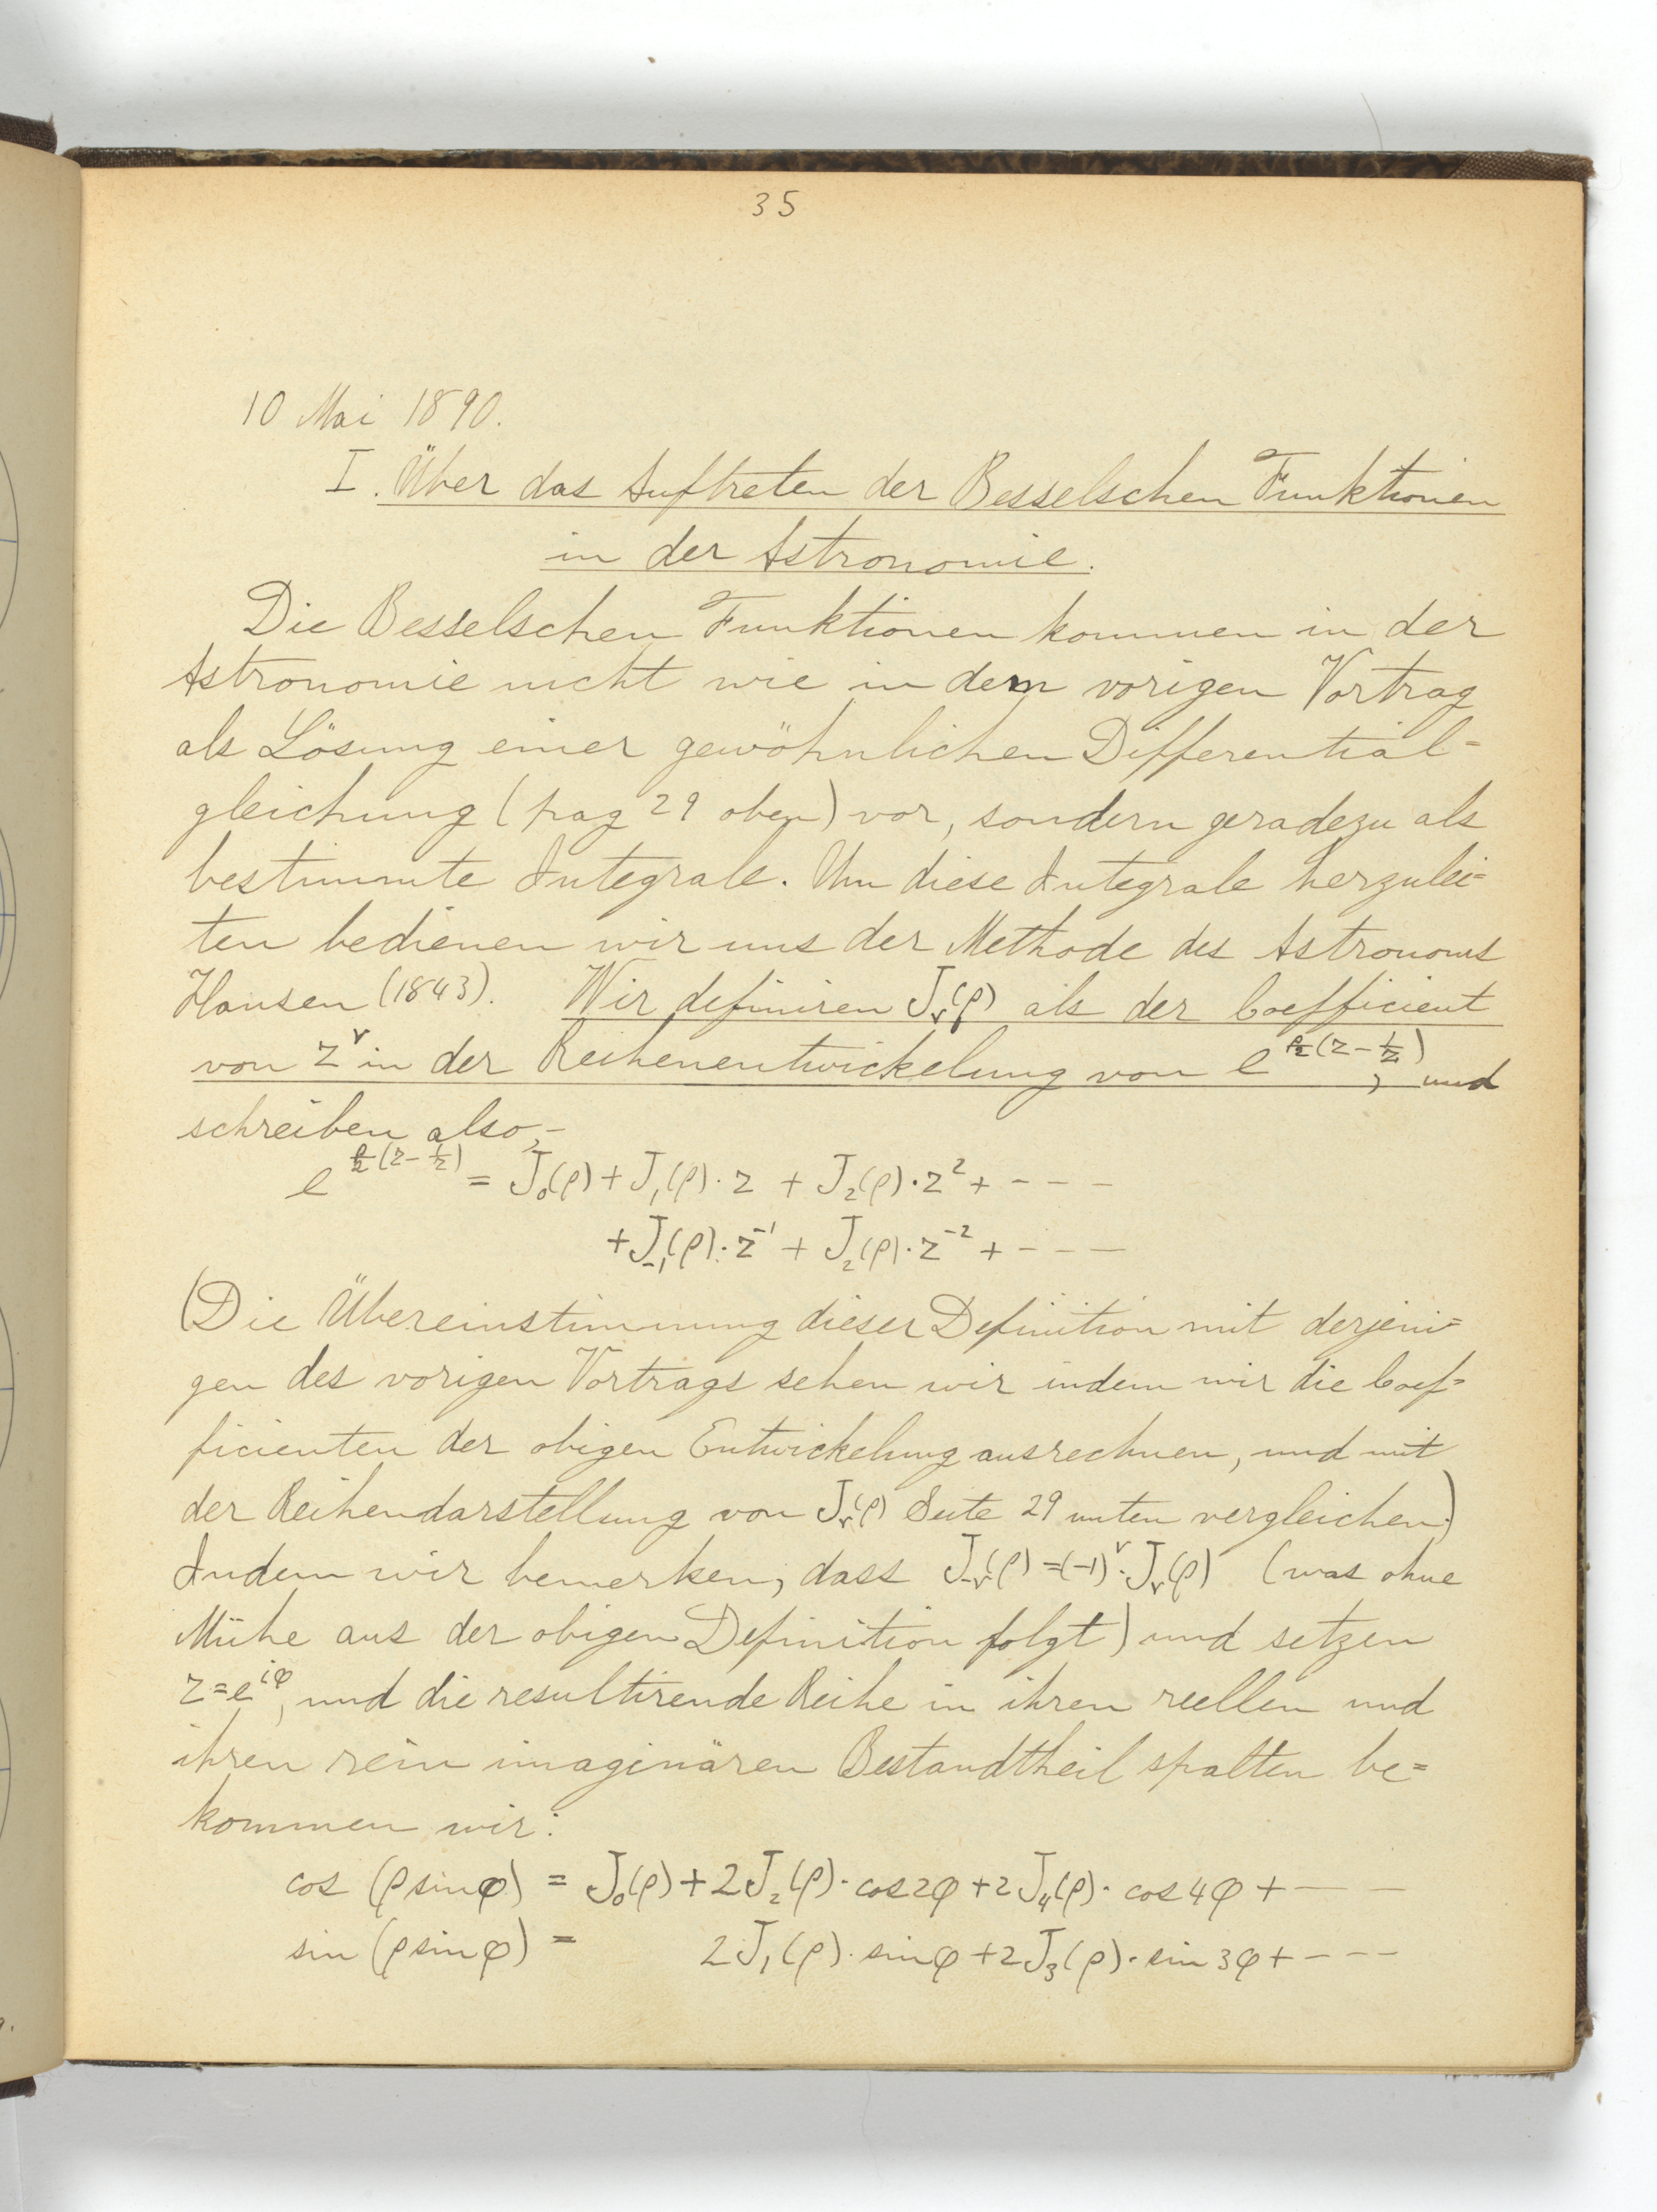 35
10 Mai 1890.
I. Über das Auftreten der Besselschen Funktionen
in der Astronomie.
Die Besselschen Funktionen kommen in der
Astronomie nicht wie in dem vorigen Vortrag
als Lösung einer gewöhnlichen Differential=
gleichung (pag 29 oben) vor, sondern geradezu als
bestimmte Integrale. Um diese Integrale herzulei=
ten bedienen wir uns der Methode des Astronoms
Hansen (1843). Wir definiren J_ν(ρ) als der Coefficient
von z^ν in der Reihenentwickelung von e^{ρ/2(z-1/z)}, und
schreiben also,-
e^{ρ/2(z-1/z)} = J_0(ρ) + J_1(ρ)·z + J_2(ρ)·z^2 + - - -
+ J_{-1}(ρ)·z^{-1} + J_2(ρ)·z^{-2} + - - -
(Die Übereinstimmung dieser Definition mit derjeni=
gen des vorigen Vortrags sehen wir indem wir die Coef=
ficienten der obigen Entwickelung ausrechnen, und mit
der Reihendarstellung von J_ν(ρ) Seite 29 unten vergleichen.)
Indem wir bemerken, dass J_{-ν}(ρ) = (-1)^ν·J_ν(ρ) (was ohne
Mühe aus der obigen Definition folgt) und setzen
z=e^{iφ}, und die resultirende Reihe in ihren reellen und
ihren rein imaginären Bestandtheil spalten be=
kommen wir:
cos (ρ sinφ) = J_0(ρ) + 2J_2(ρ)·cos2φ + 2J_4(ρ)·cos4φ + - -
sin (ρ sinφ) = 2J_1(ρ)·sinφ + 2J_3(ρ)·sin3φ + - - -